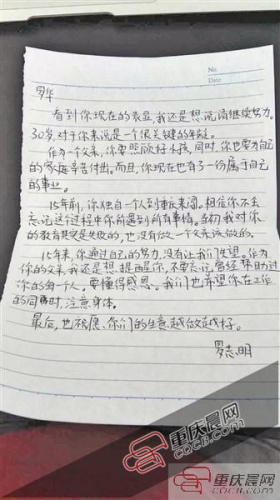 No.
Date
罗华
看到你现在的表现,我还是想说请继续努力。
30岁,对于你来说是一个很关键的年龄。
作为一个父亲,你要照顾好小孩,同时,你也要为自己
的家庭幸苦付出。而且,你现在也有了一份属于自己
的事业。
15年前,你独自一个人到重庆来闯。相信你不会
忘记这个过程中你所遇到所有事情。当初我对你
的教育是失败的,也没有做一个父亲该做的。
15年来,你通过自己的努力,没有让我们失望。作为
你的父亲,我还是想提醒你,不要忘记曾经帮助过
你的每一个人,要懂得感恩。我们也希望你在工作
的同时,注意身体。
最后,也祝愿你们的生意越做越好。
罗志明
重庆晨网
COCB.COM
重庆晨网
COCB.COM